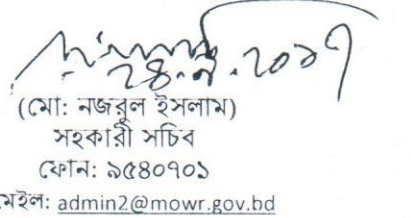 ২৪.৭.২০১৭
(মো: নজরুল ইসলাম)
সহকারী সচিব
ফোন: ৯৫৪০৭০১
মেইল: admin2@mowr.gov.bd